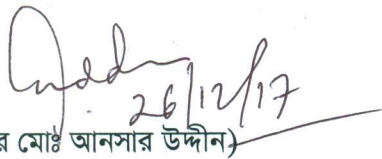 26/12/17
র মোঃ আনসার উদ্দীন)